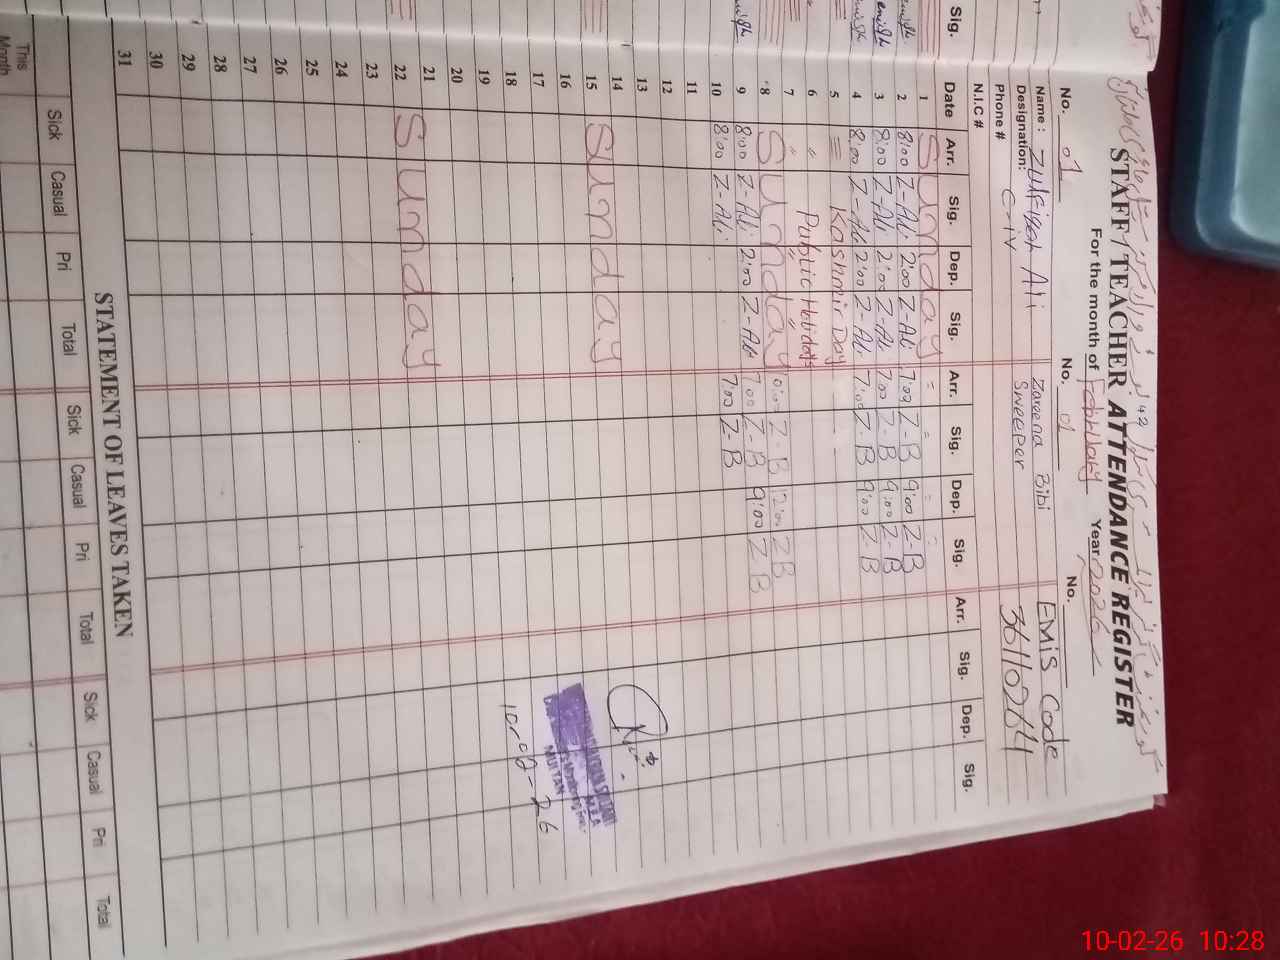 STAFF / TEACHER ATTENDANCE REGISTER
For the month of February Year 2026
No. 01 No. 01 No.
Name : Zulfiqar Ali Zareena Bibi EMIS Code
Designation: C-IV Sweeper 36110264
Phone #
N.I.C #
Date Arr. Sig. Dep. Sig. Arr. Sig. Dep. Sig. Arr. Sig. Dep. Sig.
1 Sunday
2 8:00 Z-Ali 2:00 Z-Ali 7:00 Z-B 9:00 Z-B
3 8:00 Z-Ali 2:00 Z-Ali 7:00 Z-B 9:00 Z-B
4 8:00 Z-Ali 2:00 Z-Ali 7:00 Z-B 9:00 Z-B
5 Kashmir Day
6 Public Holidays
7
8 Sunday
9 8:00 Z-Ali 2:00 Z-Ali 7:00 Z-B 9:00 Z B
10 8:00 Z-Ali 7:00 Z-B
11
12
13
14
15 Sunday
16
17
18
19
20
21
22 Sunday
23
24
25
26
27
28
29
30
31
MULTAN
10-02-26
STATEMENT OF LEAVES TAKEN
Sick Casual Pri Total Sick Casual Pri Total Sick Casual Pri Total
This Month
Sig.
10-02-26 10:28